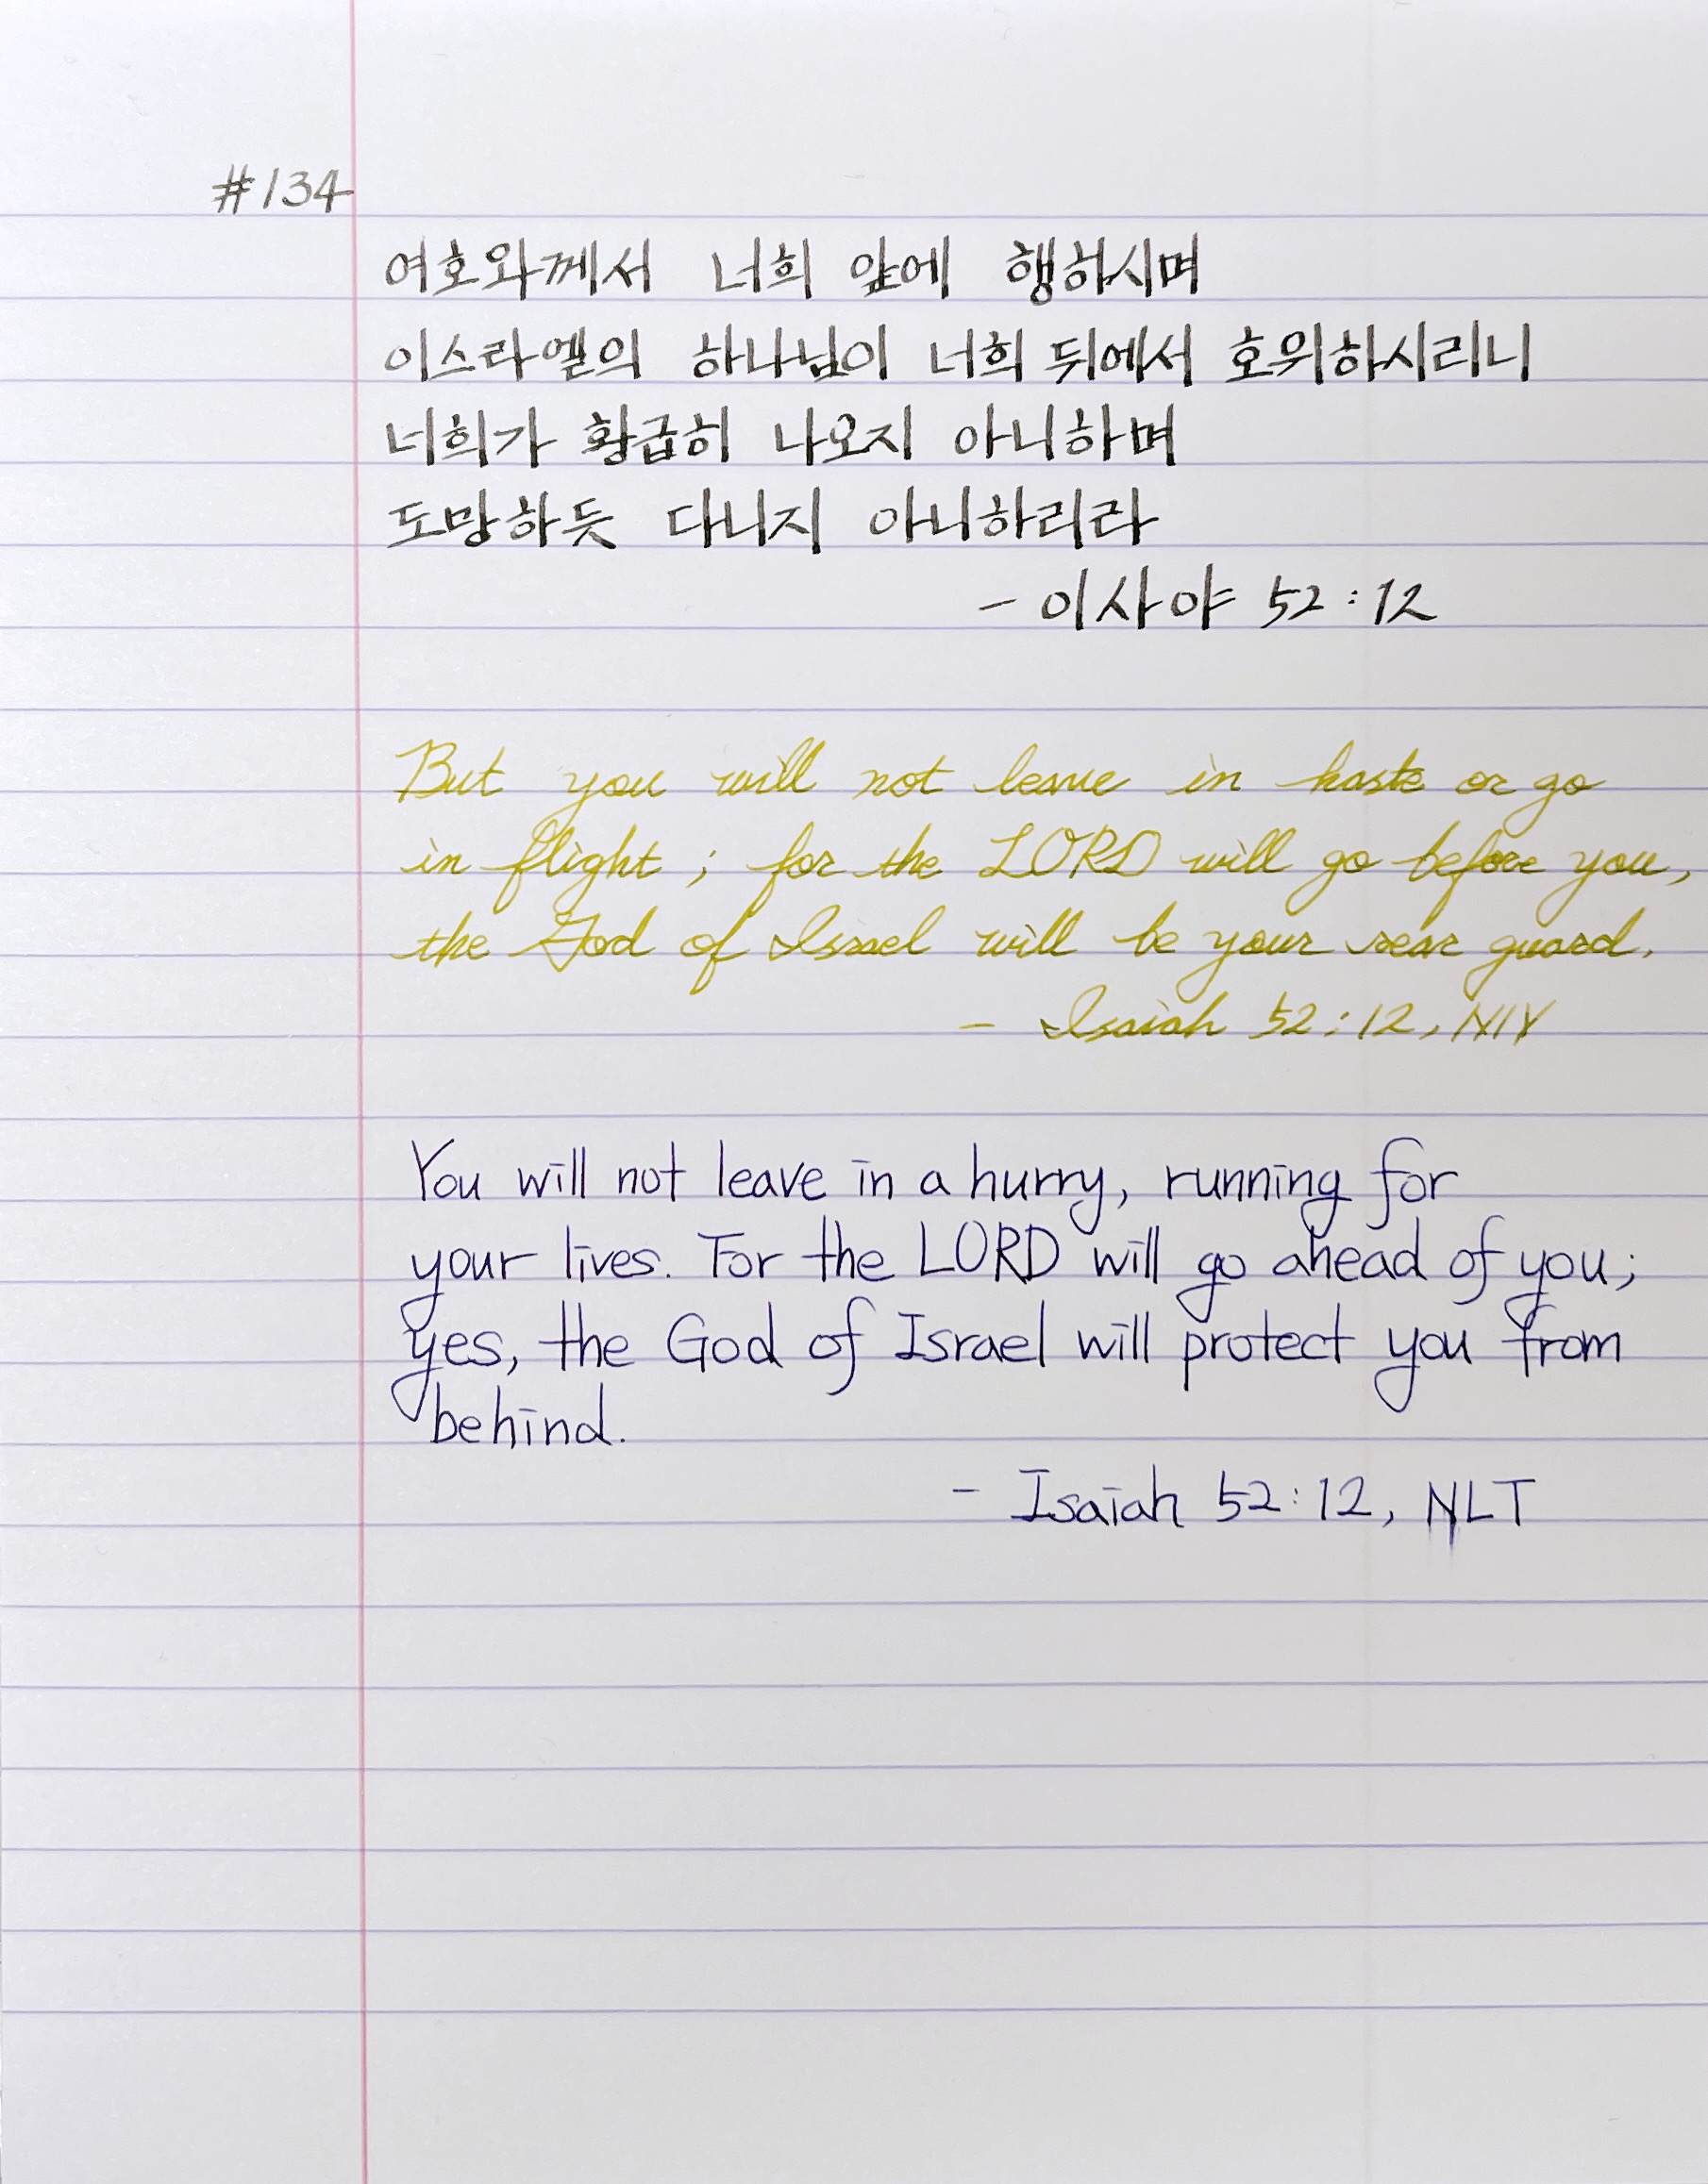 #134
여호와께서 너희 앞에 행하시며
이스라엘의 하나님이 너희 뒤에서 호위하시리니
너희가 황급히 나오지 아니하며
도망하듯 다니지 아니하리라
- 이사야 52:12
But you will not leave in haste or go
in flight; for the LORD will go before you,
the God of Israel will be your rear guard.
- Isaiah 52:12, NIV
You will not leave in a hurry, running for
your lives. For the LORD will go ahead of you;
yes, the God of Israel will protect you from
behind.
- Isaiah 52:12, NLT